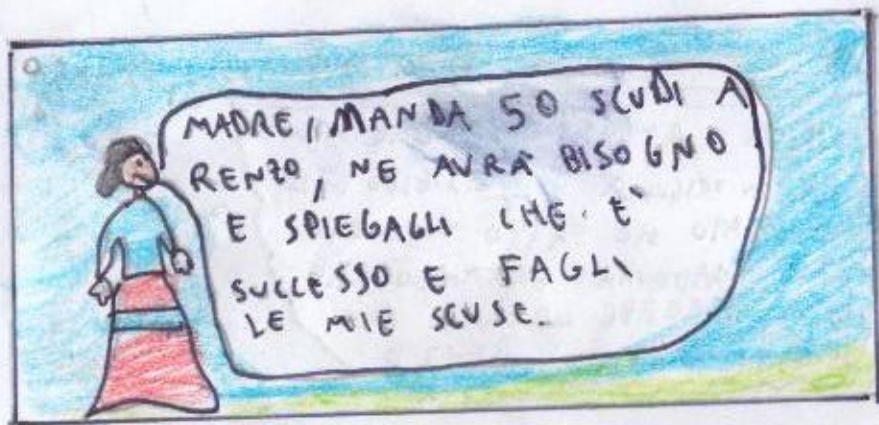 MADRE, MANDA 50 SCUDI A
RENZO, NE AVRÀ BISOGNO
E SPIEGAGLI CHE È
SUCCESSO E FAGLI
LE MIE SCUSE.